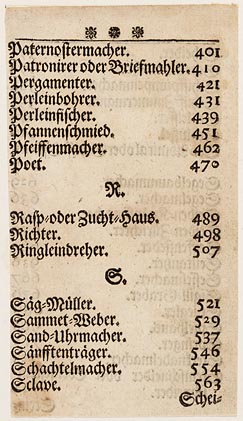 Paternostermacher. 401
Patronirer oder Briefmahler. 410
Pergamenter. 421
Perleinbohrer. 431
Perleinfischer. 439
Pfannenschmied. 451
Pfeiffenmacher. 462
Poet. 470
R.
Rasp- oder Zucht-Haus. 489
Richter. 498
Ringleindreher. 507
S.
Säg-Müller. 521
Sammet-Weber. 529
Sand-Uhrmacher. 537
Sänfftenträger. 546
Schachtelmacher. 554
Sclave. 563
Schei-